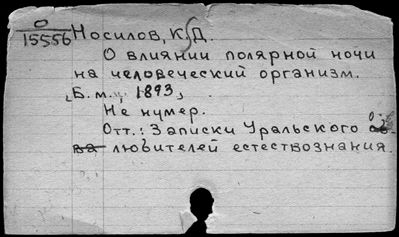 О
15556 Носилов, К.Д.
О влиянии полярной ночи
на человеческий организм.
Б.м., 1893,
Не нумер.
Отт.: Записки Уральского о-
ва любителей естествознания.